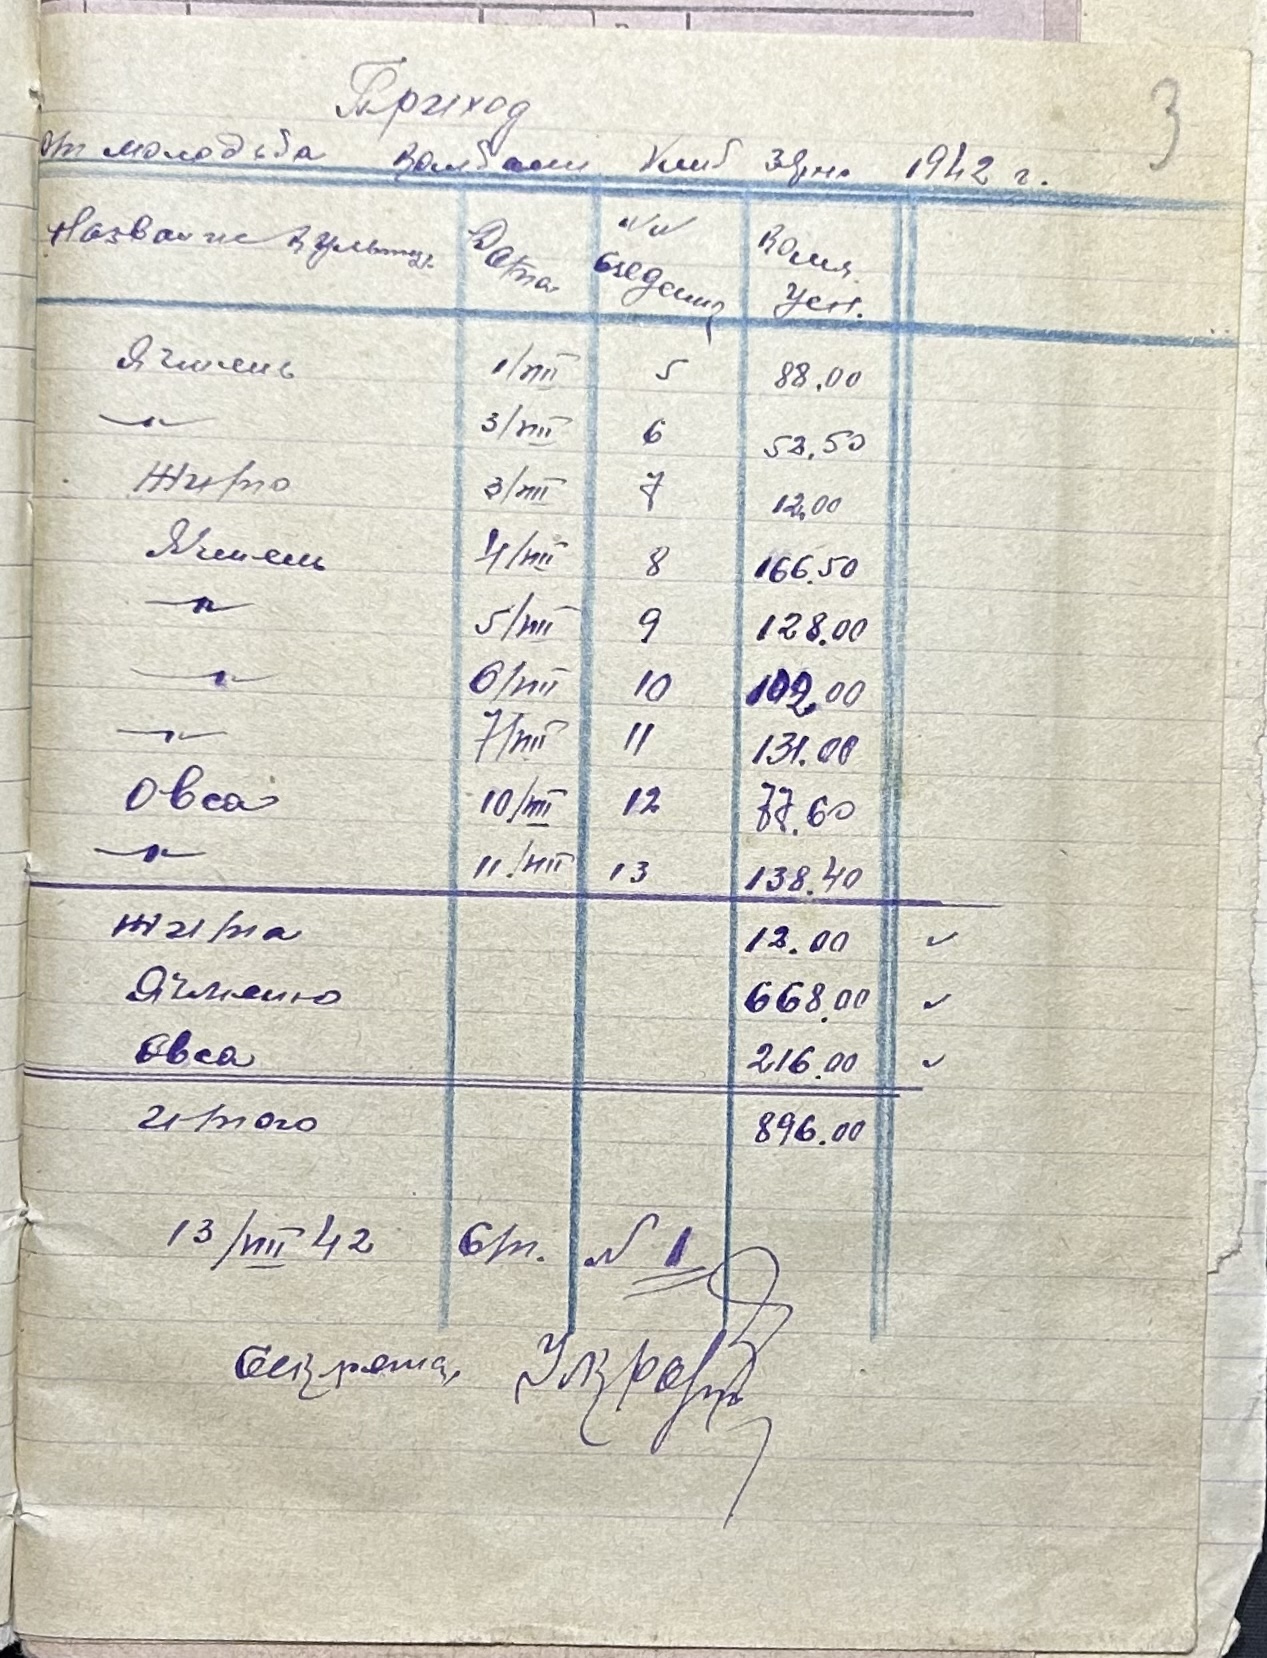 3
Приход
От молодьба комбаин 1942 г.
Название культур. Дата №№ сведений Колич. Цен.
Ячмень 1/VIII 5 88.00
—"— 3/VIII 6 52.50
Жито 3/VIII 7 12.00
Ячмень 4/VIII 8 166.50
—"— 5/VIII 9 128.00
—"— 6/VIII 10 102.00
—"— 7/VIII 11 131.00
Овса 10/VIII 12 77.60
—"— 11/VIII 13 138.40
Жита 12.00 ✓
Ячменю 668.00 ✓
Овса 216.00 ✓
Итого 896.00
13/VIII 42 Ст. N 1